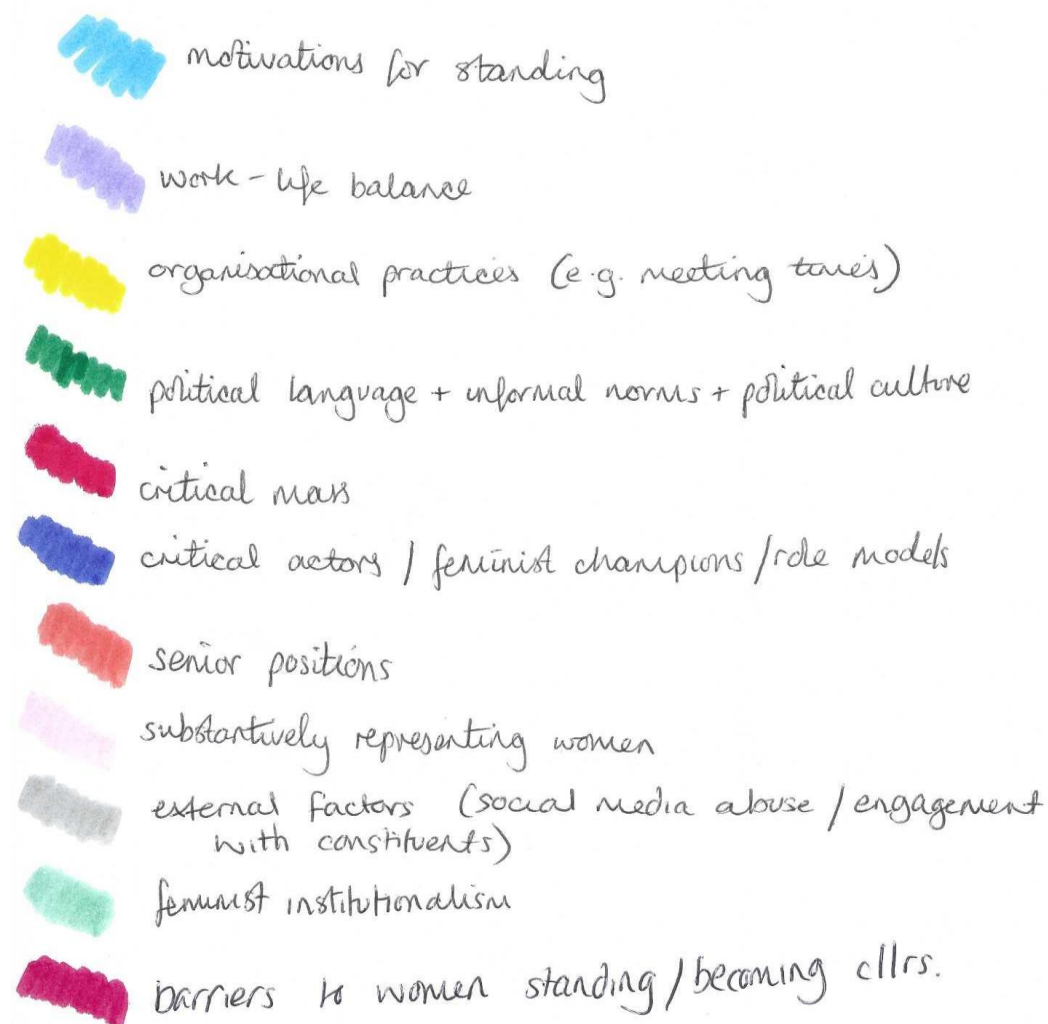 motivations for standing
work-life balance
organisational practices (e.g. meeting times)
political language + informal norms + political culture
critical mass
critical actors / feminist champions / role models
senior positions
substantively representing women
external factors (social media abuse / engagement
with constituents)
feminist institutionalism
barriers to women standing / becoming cllrs.